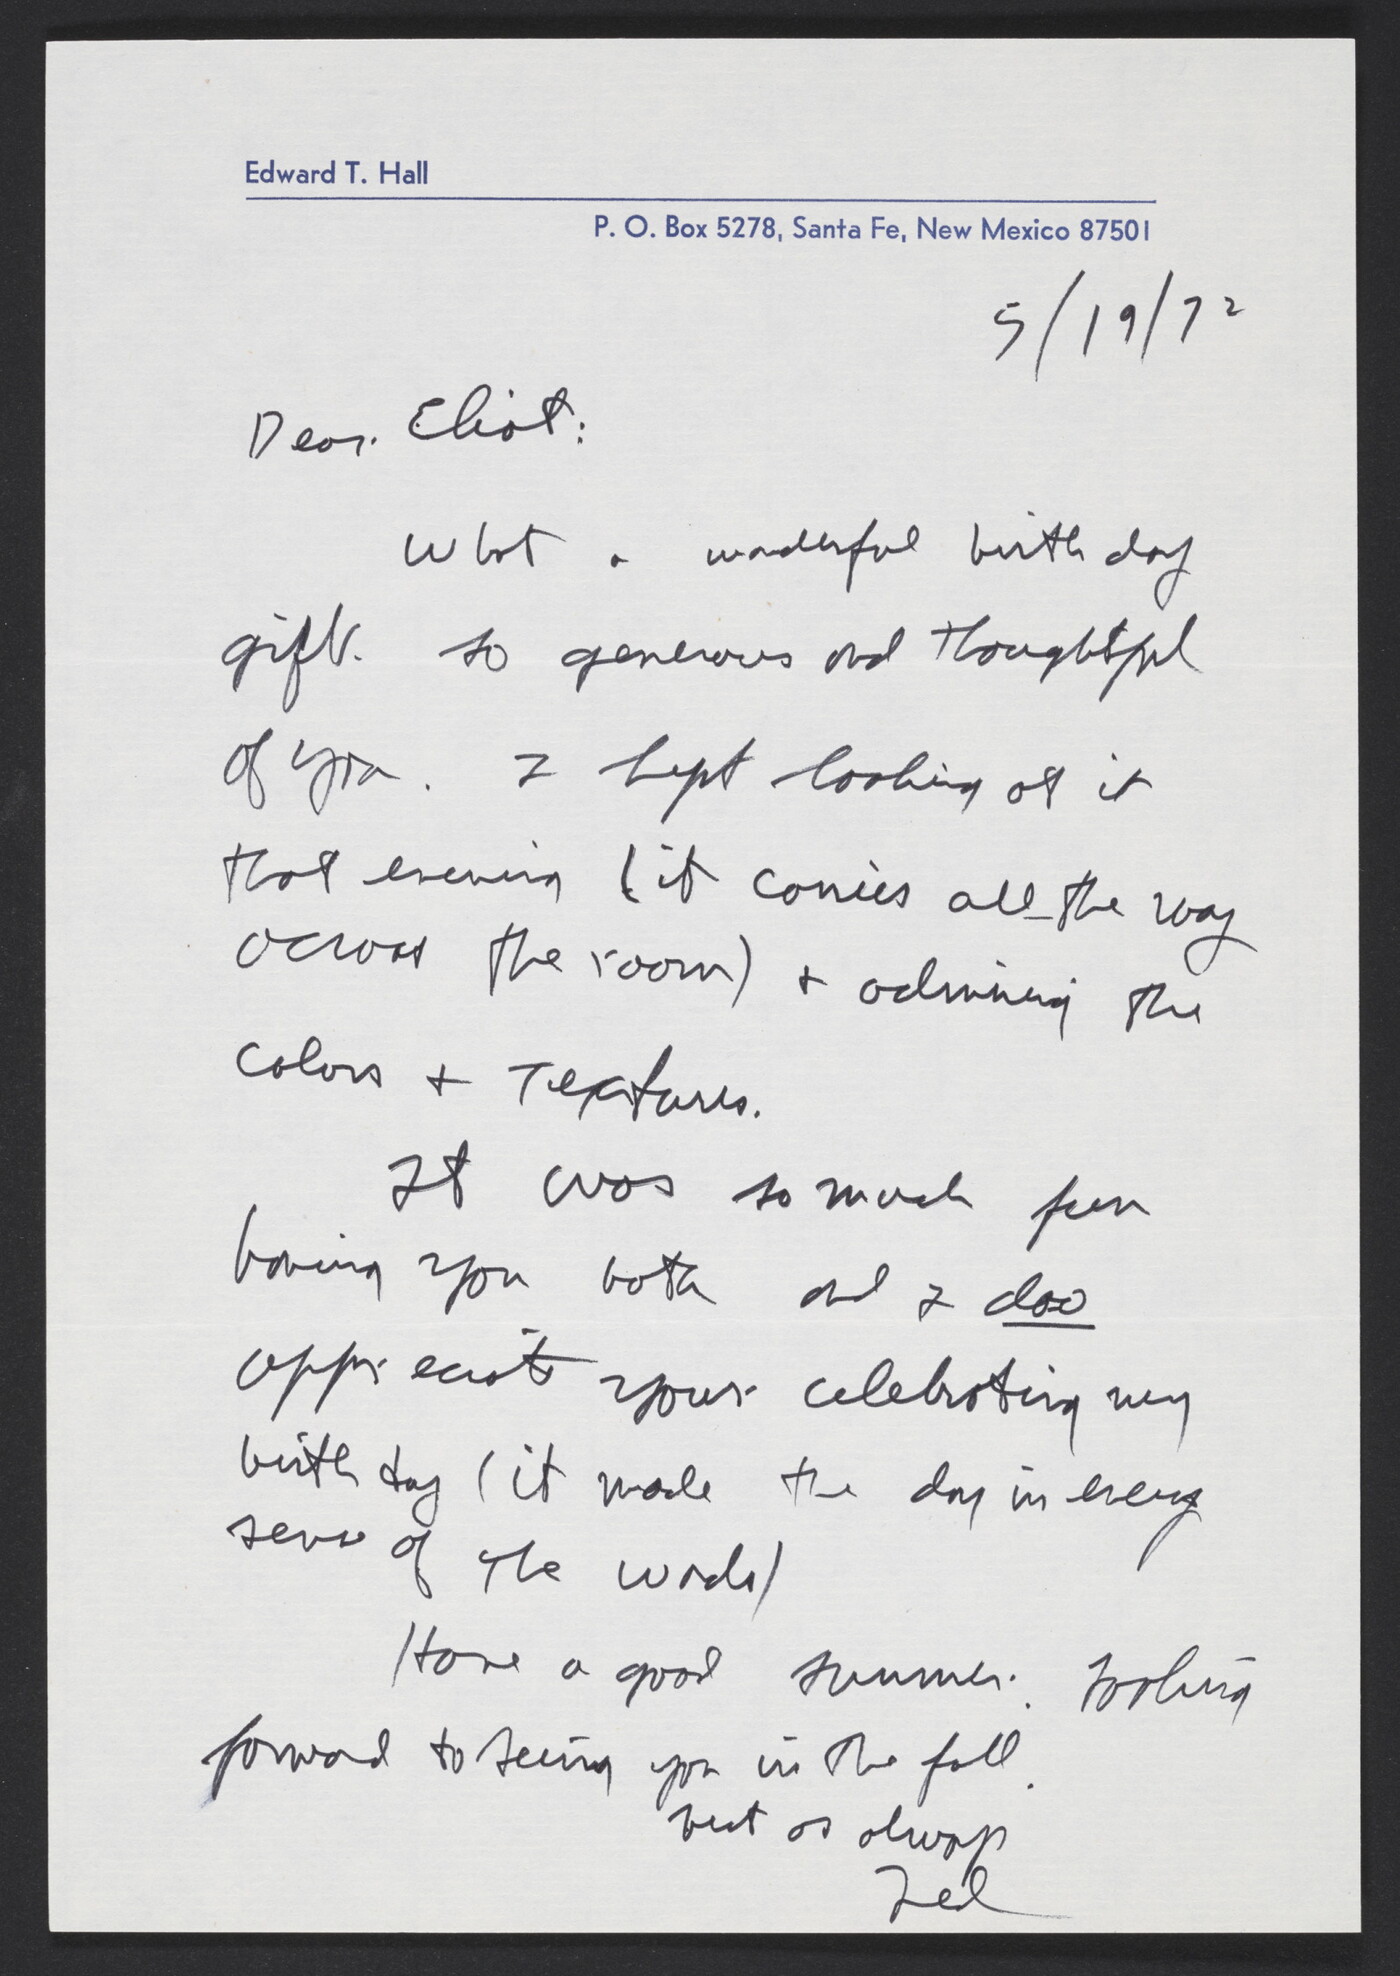 Edward T. Hall
P. O. Box 5278, Santa Fe, New Mexico 87501
5/19/72
Dear Eliot:
What a wonderful birthday
gift. so generous and thoughtful
of you. I kept looking at it
that evening (it carries all the way
across the room) + admiring the
colors + Textures.
It was so much fun
having you both and I doo
appreciate your celebrating my
birthday (it made the day in every
sense of the words)
Have a good summer. Looking
forward to seeing you in the fall.
best as always
Ted